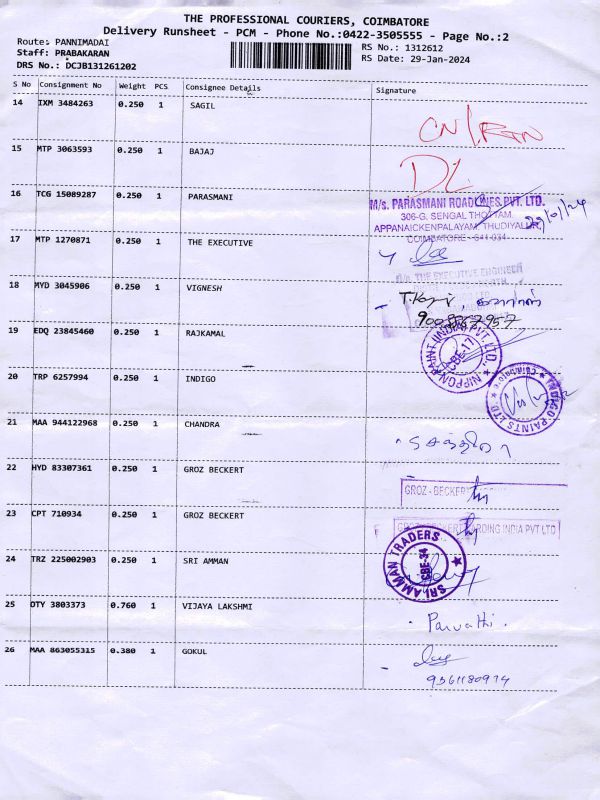 THE PROFESSIONAL COURIERS, COIMBATORE
Delivery Runsheet - PCM - Phone No.:0422-3505555 - Page No.:2
Route: PANNIMADAI
RS No.: 1312612
Staff: PRABAKARAN
RS Date: 29-Jan-2024
DRS No.: DCJB131261202
S No Consignment No Weight PCS Consignee Details Signature
14 IXM 3484263 0.250 1 SAGIL
15 MTP 3063593 0.250 1 BAJAJ
DL
16 TCG 15089287 0.250 1 PARASMANI
M/s. PARASMANI ROADLINES PVT. LTD.
306-G. SENGAL THOTTAM,
29/01/24
APPANAICKENPALAYAM, THUDIYALUR,
COIMBATORE - 641 034
17 MTP 1270871 0.250 1 THE EXECUTIVE
M/s. THE EXECUTIVE ENGINEER
18 MYD 3045906 0.250 1 VIGNESH
19 EDQ 23845460 0.250 1 RAJKAMAL
NIPPON PAINT (INDIA) PVT. LTD.
CBE-17
20 TRP 6257994 0.250 1 INDIGO
INDIGO PAINTS LTD
Coimbatore
21 MAA 944122968 0.250 1 CHANDRA
22 HYD 83307361 0.250 1 GROZ BECKERT
GROZ - BECKERT
23 CPT 710934 0.250 1 GROZ BECKERT
GROZ-BECKERT CARDING INDIA PVT LTD
24 TRZ 225002903 0.250 1 SRI AMMAN
SRI AMMAN TRADERS
CBE-34
25 OTY 3803373 0.760 1 VIJAYA LAKSHMI
Parvathi
26 MAA 863055315 0.380 1 GOKUL
9361180974